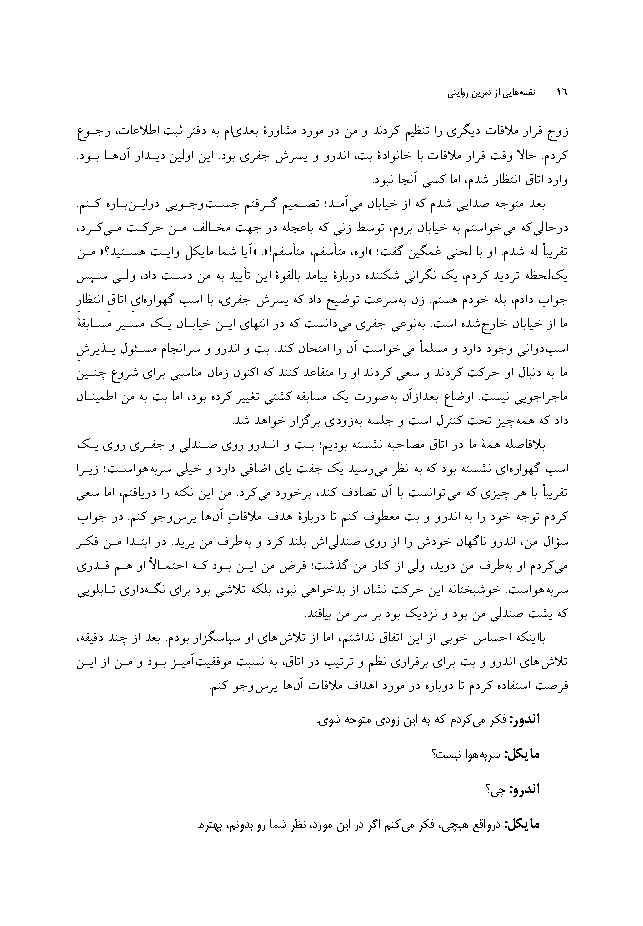 ۱۶ نقشه‌هایی از تمرین روایتی
زوج قرار ملاقات دیگری را تنظیم کردند و من در مورد مشاورهٔ بعدی‌ام به دفتر ثبت اطلاعات، رجوع
کردم. حالا وقت قرار ملاقات با خانوادهٔ تب، اندرو و پرسش جفری بود. این اولین دیدار آن‌ها بود.
وارد اتاق انتظار شدم، اما کسی آنجا نبود.
بعد متوجه صدایی شدم که از خیابان می‌آمد؛ تصمیم گرفتم جست‌وجویی در این‌باره کنم.
درحالی‌که می‌خواستم به خیابان بروم، توسط زنی که باعجله در جهت مخالف من حرکت می‌کرد،
تقریباً له شدم. او با لحنی غمگین گفت؛ «اوه، متأسفم، متأسفم!». «آیا شما مایکل وایت هستید؟» من
یک‌لحظه تردید کردم، یک نگرانی کشنده دربارهٔ پیامد بالقوهٔ این تأیید به من دست داد، ولی سپس
جواب دادم، بله خودم هستم. زن به‌سرعت توضیح داد که پرسش جفری، با اسب گهواره‌ای اتاق انتظار
ما از خیابان خارج‌شده است. به‌نوعی جفری می‌دانست که در انتهای این خیابان یک مسیر مسابقهٔ
اسب‌دوانی وجود دارد و مسلماً می‌خواست از آن را امتحان کند. تب و اندرو و سرانجام مسئول پذیرش
ما به دنبال او حرکت کردند و سعی کردند او را متقاعد کنند که اکنون زمان مناسبی برای شروع چنین
ماجراجویی نیست. اوضاع بعدازآن به‌صورت یک مسابقه کشتی تغییر کرده بود، اما تب به من اطمینان
داد که همه‌چیز تحت کنترل است و جلسه به‌زودی برگزار خواهد شد.
بلافاصله همهٔ ما در اتاق مصاحبه نشسته بودیم؛ تب و اندرو روی صندلی و جفری روی یک
اسب گهواره‌ای نشسته بود که به نظر می‌رسید یک جفت پای اضافی دارد و خیلی سربه‌هواست؛ زیرا
تقریباً با هر چیزی که می‌توانست با آن تصادف کند، برخورد می‌کرد. من این نکته را دریافتم، اما سعی
کردم توجه خود را به اندرو و تب معطوف کنم تا دربارهٔ هدف ملاقاتِ آن‌ها پرس‌وجو کنم. در جواب
سؤال من، اندرو ناگهان خودش را از روی صندلی‌اش بلند کرد و به‌طرف من پرید. در ابتدا من فکر
می‌کردم او به‌طرف من می‌دود، ولی او از کنار من گذشت؛ فرض من این بود که احتمالاً او هم قدری
سربه‌هواست. خوشبختانه این حرکت نشان از بدخواهی نبود، بلکه تلاشی بود برای نگه‌داری تابلویی
که پشت صندلی من بود و نزدیک بود بر سر من بیافتد.
بااینکه احساس خوبی از این اتفاق نداشتم، اما از تلاش‌های او سپاسگزار بودم. بعد از چند دقیقه،
تلاش‌های اندرو و تب برای برقراری نظم و ترتیب در اتاق، به نسبت موفقیت‌آمیز بود و من از این
فرصت استفاده کردم تا دوباره در مورد اهداف ملاقات آن‌ها پرس‌وجو کنم.
اندرو: فکر می‌کردم که به این زودی متوجه شوی.
مایکل: سربه‌هوا نیست؟
اندرو: چی؟
مایکل: درواقع هیچی، فکر می‌کنم اگر در این مورد، نظر شما رو بدونم، بهتره.